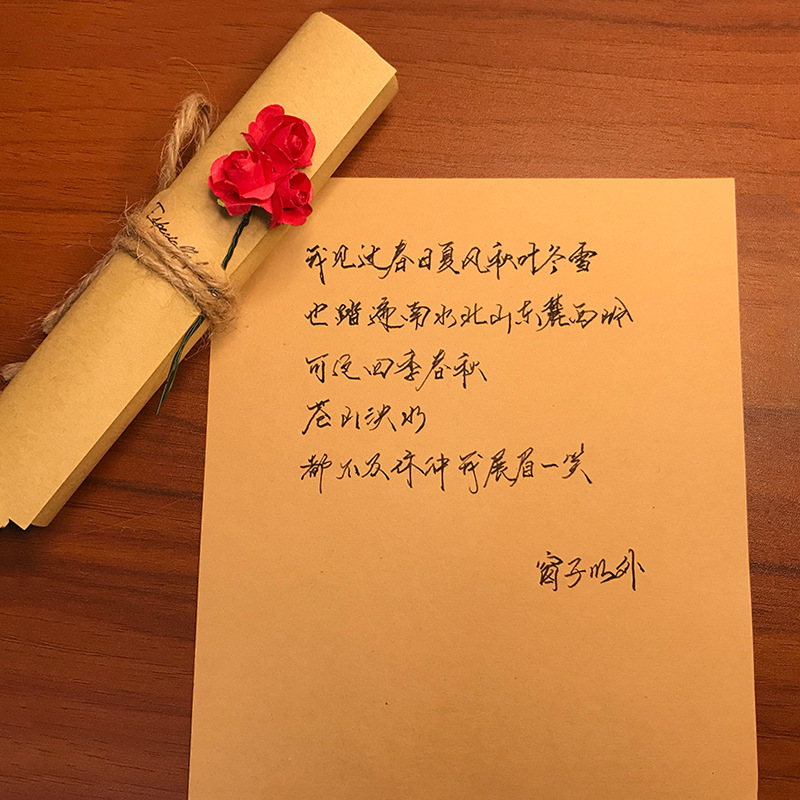 我见过春日夏风秋叶冬雪
也踏遍南水北山东麓西岭
可这四季春秋
苍山泱水
都不及你冲我展眉一笑
窗子以外